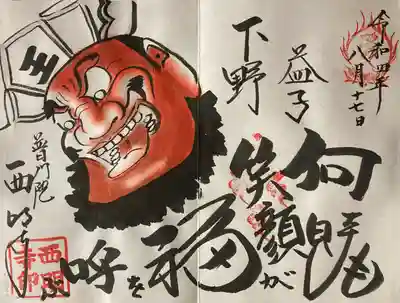 令和四年
八月十七日
下野
益子
何時も
笑顔が
福を
呼ぶ
王
普門院
西明寺
西明
寺印